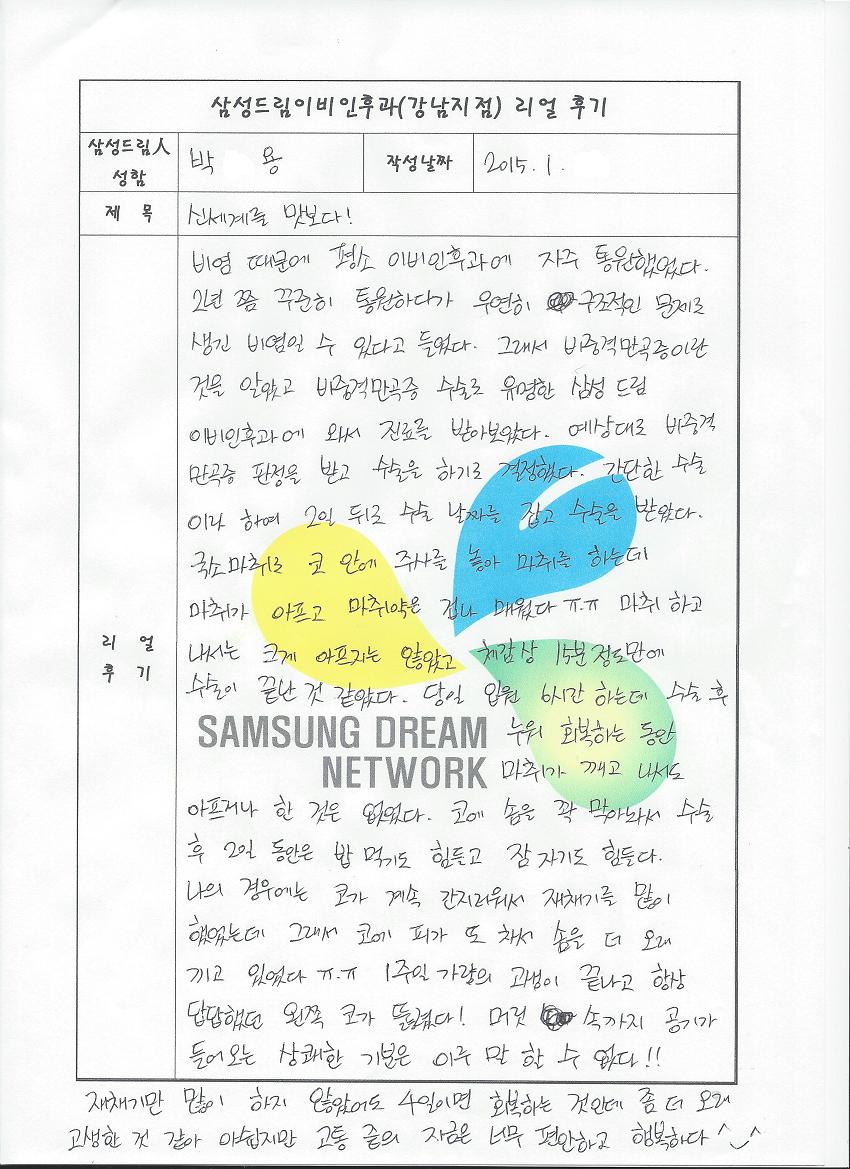 삼성드림이비인후과(강남지점) 리얼 후기
삼성드림人 성함
박 용
작성날짜
2015. 1.
제 목
신세계를 맛보다!
리 얼 후 기
비염 때문에 평소 이비인후과에 자주 통원했었다.
2년 쯤 꾸준히 통원하다가 우연히 구조적인 문제로
생긴 비염일 수 있다고 들었다. 그래서 비중격만곡증이란
것을 알았고 비중격만곡증 수술로 유명한 삼성 드림
이비인후과에 와서 진료를 받아보았다. 예상대로 비중격
만곡증 판정을 받고 수술을 하기로 결정했다. 간단한 수술
이라 하여 2일 뒤로 수술 날짜를 잡고 수술을 받았다.
국소마취로 코 안에 주사를 놓아 마취를 하는데
마취가 아프고 마취약은 겁나 매웠다 ㅠ.ㅠ 마취 하고
나서는 크게 아프지는 않았고 체감상 15분정도만에
수술이 끝난 것 같았다. 당일 입원 6시간 하는데 수술 후
누워 회복하는 동안
SAMSUNG DREAM
NETWORK
마취가 깨고 나서도
아프거나 한 것은 없었다. 코에 솜을 꽉 막아놔서 수술
후 2일 동안은 밥 먹기도 힘들고 잠 자기도 힘들다.
나의 경우에는 코가 계속 간지러워서 재채기를 많이
했었는데 그래서 코에 피가 또 차서 솜을 더 오래
끼고 있었다 ㅠ.ㅠ 1주일 가량의 고생이 끝나고 항상
답답했던 왼쪽 코가 뚫렸다! 머릿 속까지 공기가
들어오는 상쾌한 기분은 이루 말 할 수 없다!!
재채기만 많이 하지 않았어도 4일이면 회복하는 것인데 좀 더 오래
고생한 것 같아 아쉽지만 고통 끝의 지금은 너무 편안하고 행복하다 ^‿^